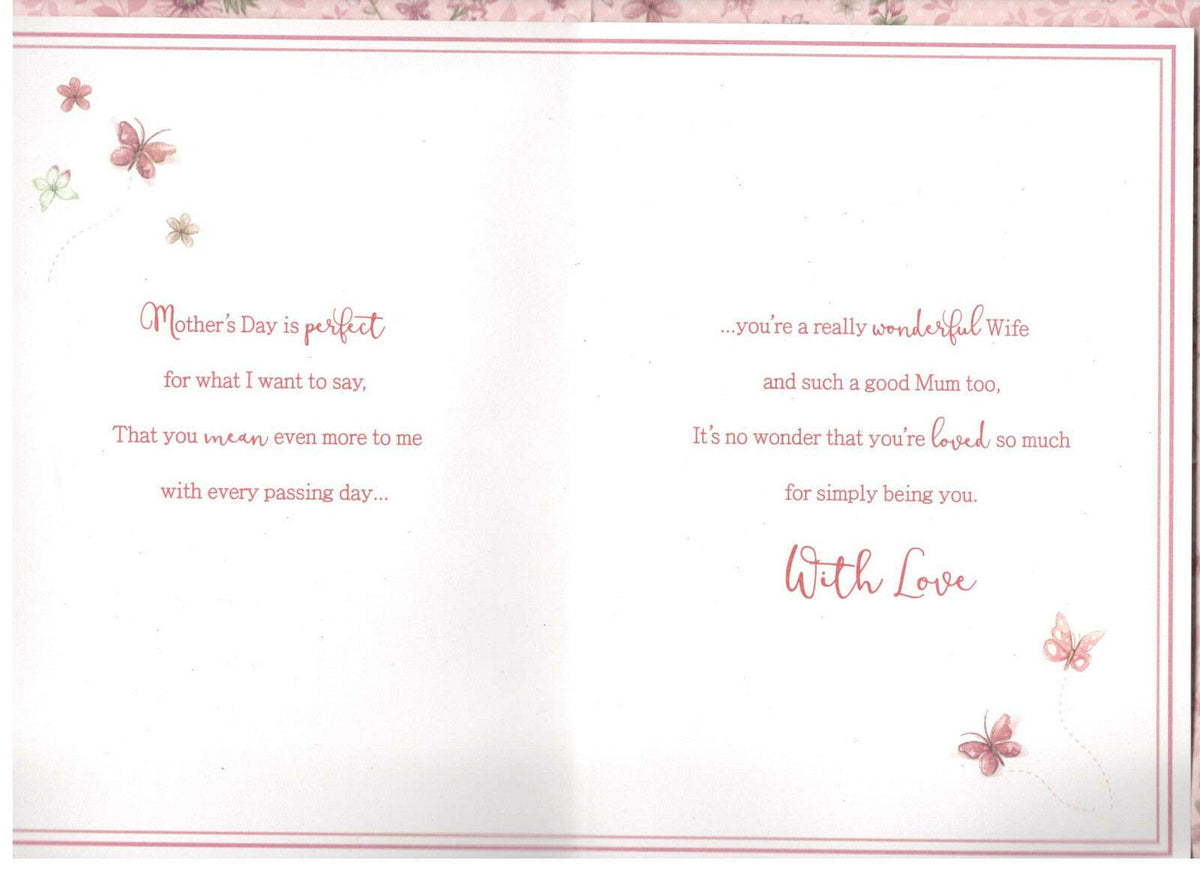 Mother's Day is perfect
for what I want to say,
That you mean even more to me
with every passing day...
...you're a really wonderful Wife
and such a good Mum too,
It's no wonder that you're loved so much
for simply being you.
With Love